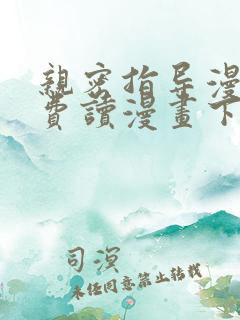 親密指导漫
費讀漫畫下
司溟
未经同意禁止转载